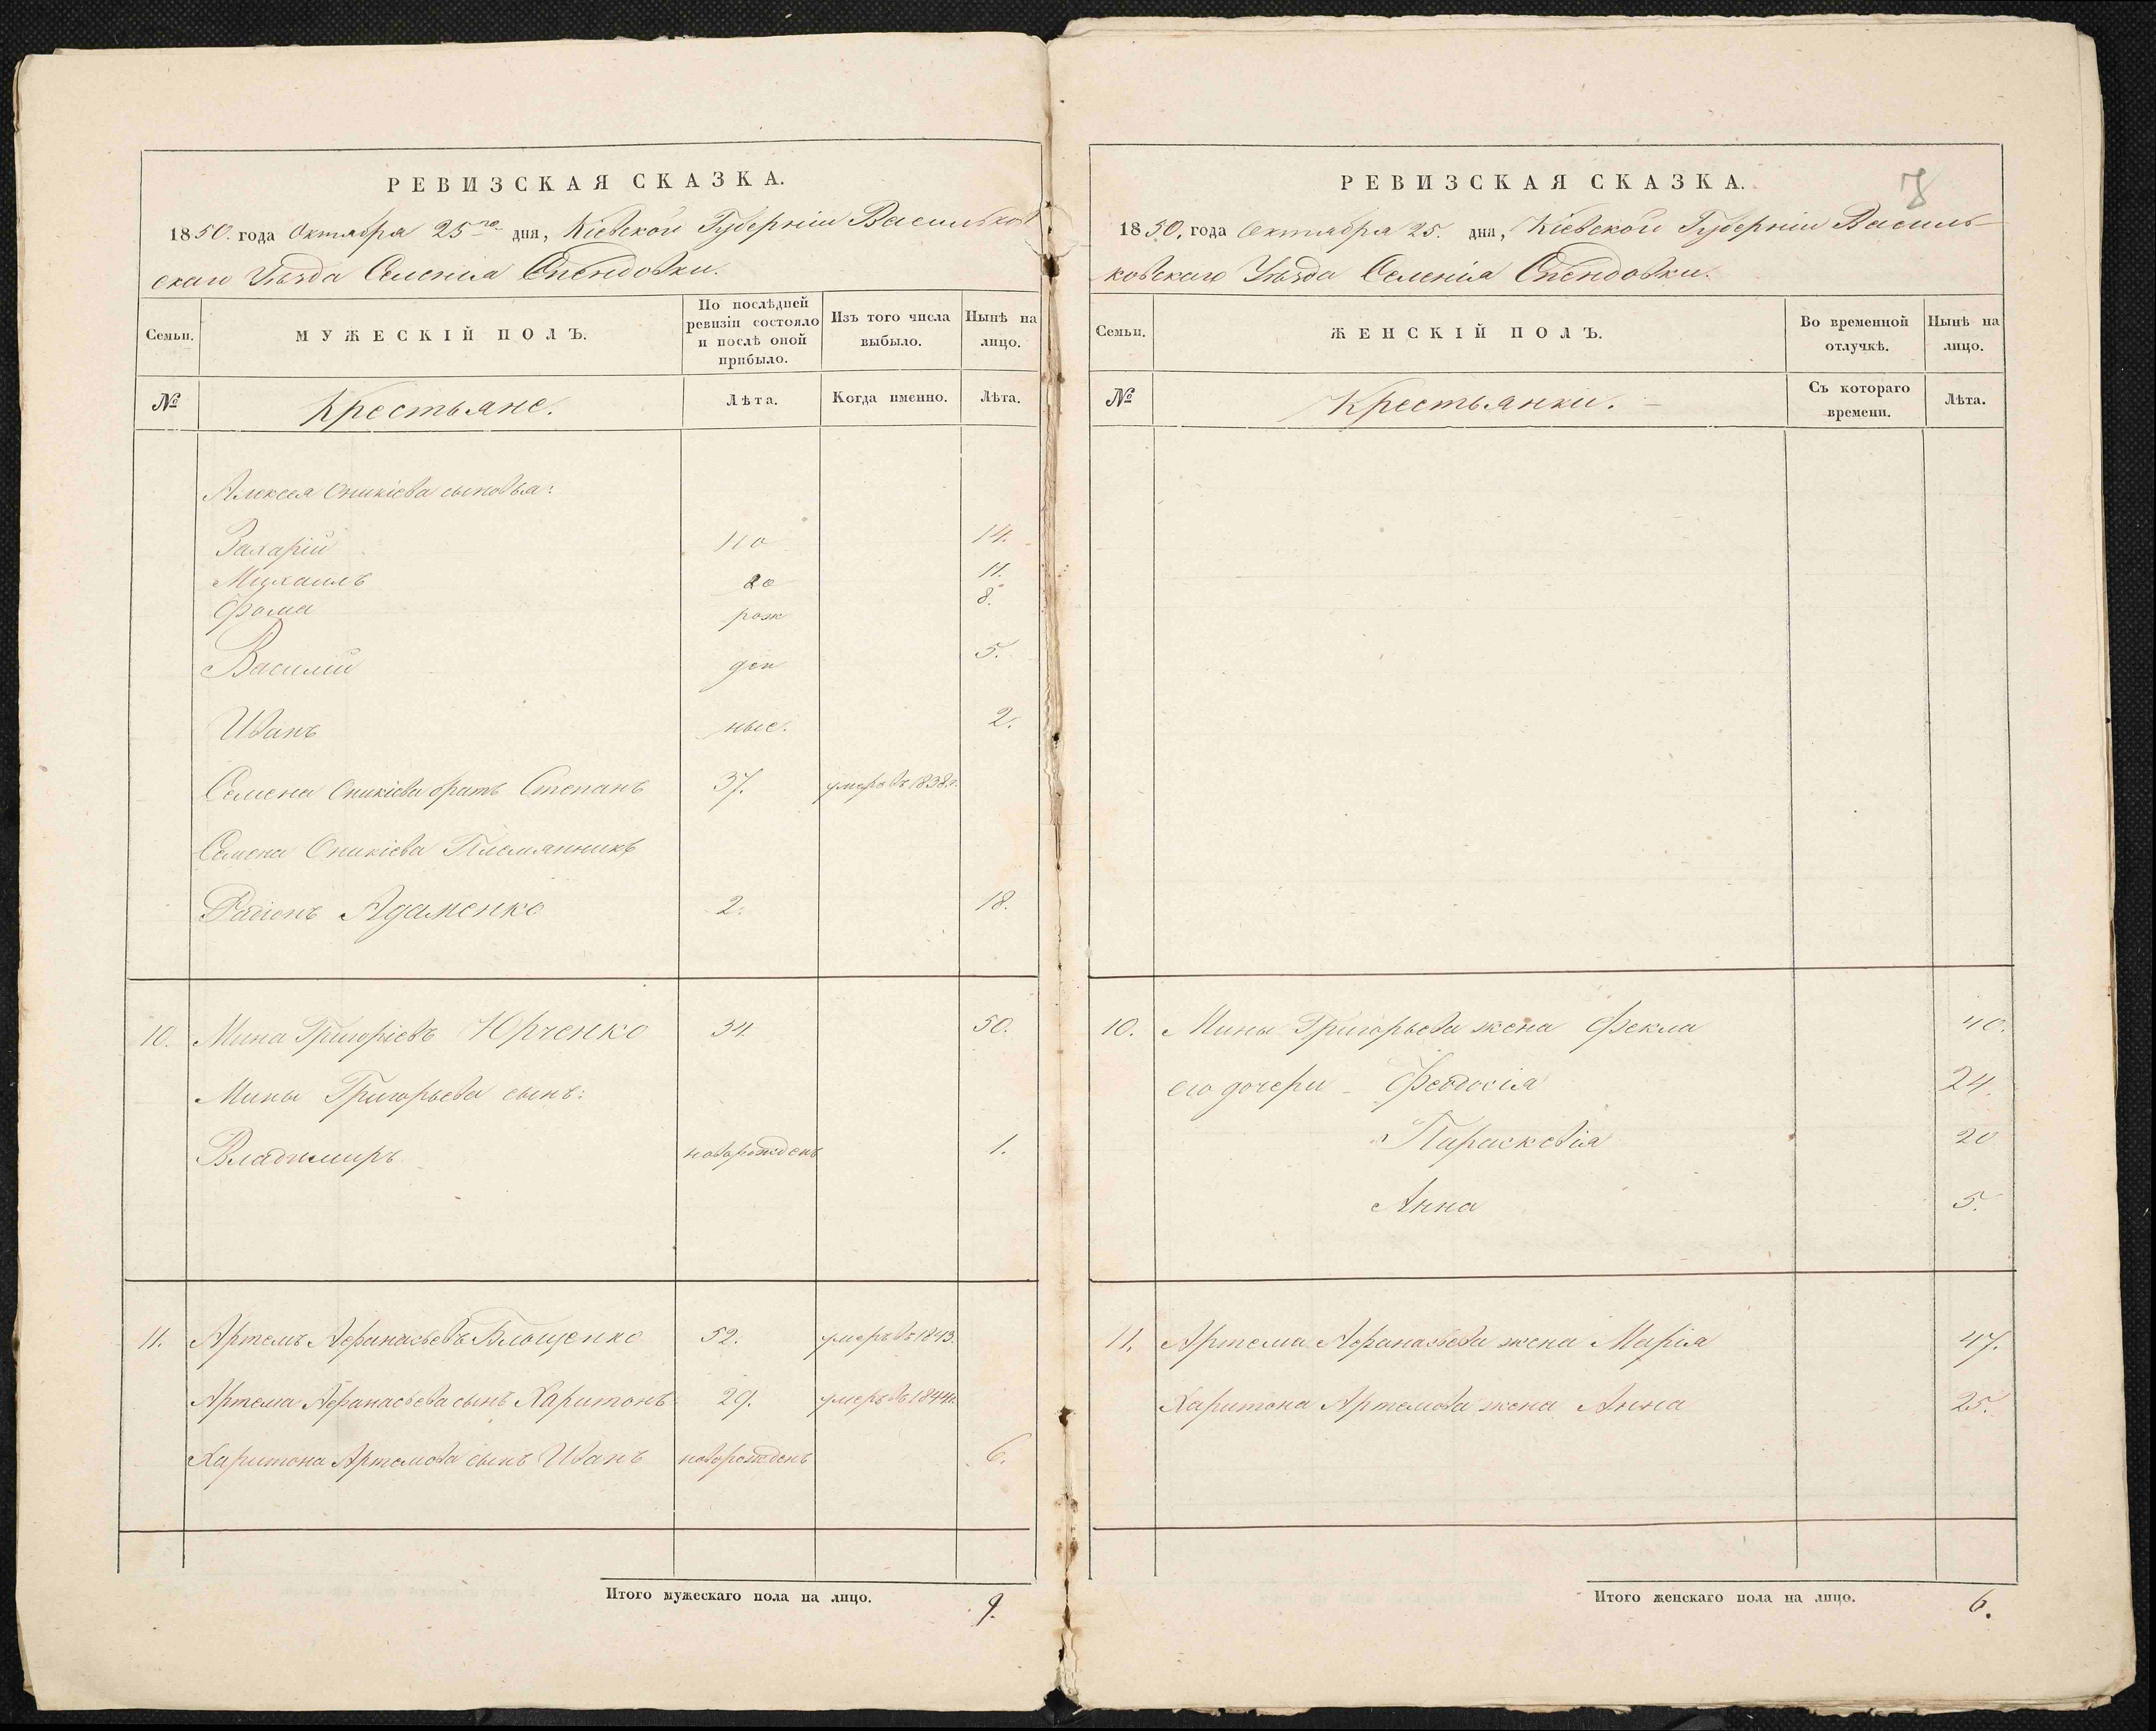 РЕВИЗСКАЯ СКАЗКА.
1850. года Октября 25го дня, Кіевской Губерніи Васильков
скаго Уѣзда Селенія Опендовки.
Семьи.
МУЖЕСКІЙ ПОЛЪ.
По послѣдней ревизіи состояло и послѣ оной прибыло.
Изъ того числа выбыло.
Нынѣ на лицо.
№
Крестьяне.
Лѣта.
Когда именно.
Лѣта.
Алексея Оникіева сыновья:
Захарій но 14.
Михаилъ во 11.
Фома рож 8.
Василій ден 5.
Иванъ ные. 2.
Семена Оникіева братъ Степанъ 37. умеръ въ 1838г.
Семена Оникіева Племянникъ
Адаменко 2. 18.
10. Мина Григоріевъ Юрченко 34. 50.
Мины Григорьева сынъ:
Владимиръ новорожденъ 1.
11. Артемъ Афанасьевъ Блощенко 52. умеръ въ 1843.
Артема Афанасьева сынъ Харитонъ 29. умеръ въ 1844г.
Харитона Артемова сынъ Иванъ новорожденъ 6.
Итого мужескаго пола на лицо. 9.
РЕВИЗСКАЯ СКАЗКА.
1850. года Октября 25. дня, Кіевской Губерніи Василь-
ковскаго Уѣзда Селенія Опендовки.
Семьи.
ЖЕНСКІЙ ПОЛЪ.
Во временной отлучкѣ.
Нынѣ на лицо.
№
Крестьянки.
Съ котораго времени.
Лѣта.
10. Мины Григорьева жена Фекла 40.
его дочери – Феодосія 24.
Параскевія 20
Анна 5.
11. Артема Афанасьева жена Марія 47.
Харитона Артемова жена Анна 25.
Итого женскаго пола на лицо. 6.